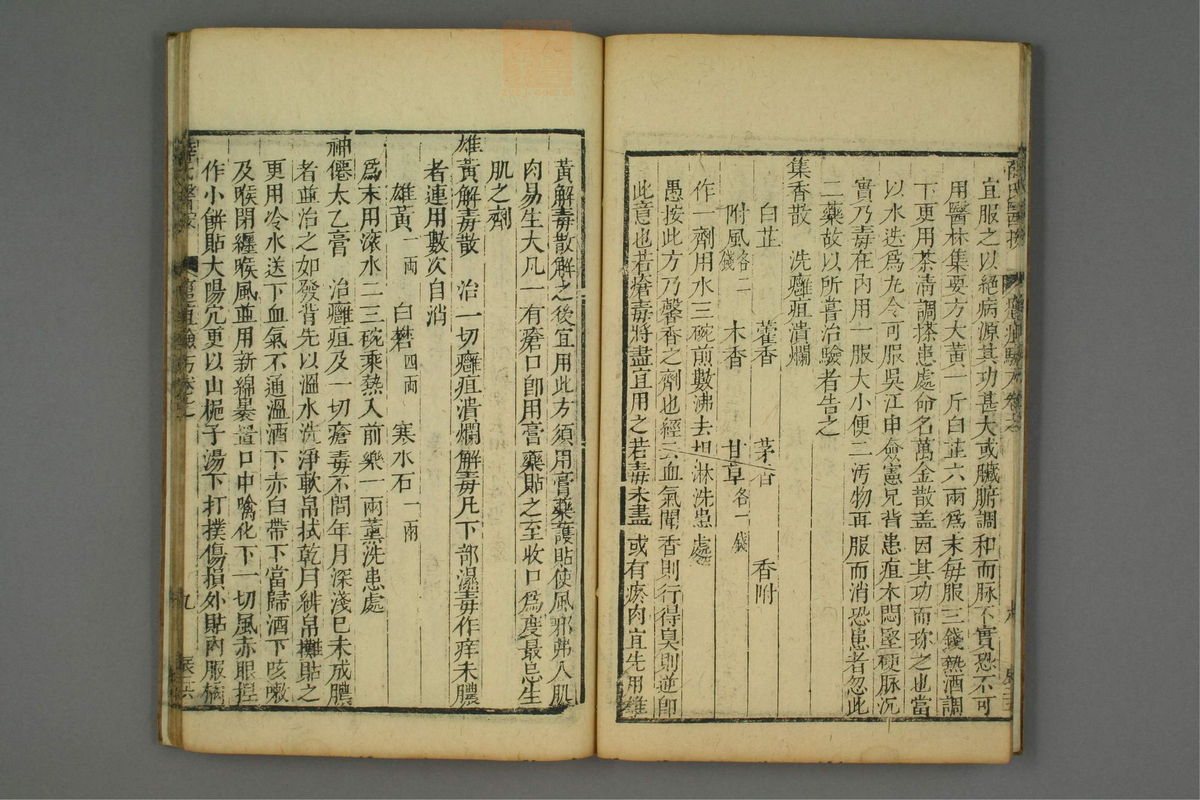 宜服之以絕病源其功甚大或臟腑調和而脉不實恐不可
用醫林集要方大黃一斤白芷六兩爲末每服三錢熱酒調
下更用茶清調搽患處命名萬金散盖因其功而珎之也當
以水迭爲丸令可服吳江申僉憲兄背患疽木悶堅硬脉沉
實乃毒在內用一服大小便二汚物再服而消恐患者忽此
二藥故以所嘗治驗者告之
集香散　洗癰疽潰爛
白芷　藿香　茅香　香附
防風各二錢　木香　甘草各一錢
作一劑用水三碗煎數沸去柤淋洗患處
愚按此方乃馨香之劑也經云血氣聞香則行得臭則逆卽
此意也若瘡毒將盡宜用之若毒未盡或有瘀肉宜先用雄
黃解毒散解之後宜用此方須用膏藥護貼使風邪弗入肌
肉易生大凡一有瘡口卽用膏藥貼之至收口爲度最忌生
肌之劑
雄黃解毒散　治一切癰疽潰爛解毒凡下部濕毒作痒未膿
者連用數次自消
雄黃一兩　白礬四兩　寒水石一兩
爲末用滚水二三碗乘熱入前藥一兩薰洗患處
神僊太乙膏　治癰疽及一切瘡毒不問年月深淺已未成膿
者並治之如發背先以溫水洗淨軟帛拭乾用緋帛攤貼之
更用冷水送下血氣不通溫酒下赤白帶下當歸酒下咳嗽
及喉閉纏喉風並用新綿裹置口中噙化下一切風赤眼揑
作小餅貼太陽穴更以山梔子湯下打撲傷損外貼內服橘